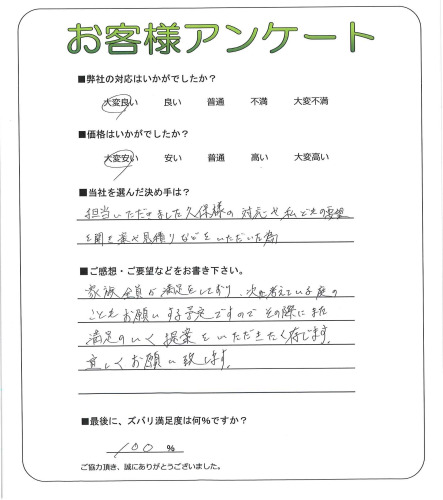 お客様アンケート
■弊社の対応はいかがでしたか？
大変良い 良い 普通 不満 大変不満
■価格はいかがでしたか？
大変安い 安い 普通 高い 大変高い
■当社を選んだ決め手は？
担当いただきました久保様の対応や私どもの要望
を聞き案や見積りなどをいただいた為
■ご感想・ご要望などをお書き下さい。
家族全員が満足をしており、次に考えている庭の
こともお願いする予定ですのでその際にまた
満足のいく提案をいただきたく存じます。
宜しくお願い致します。
■最後に、ズバリ満足度は何％ですか？
100 ％
ご協力頂き、誠にありがとうございました。